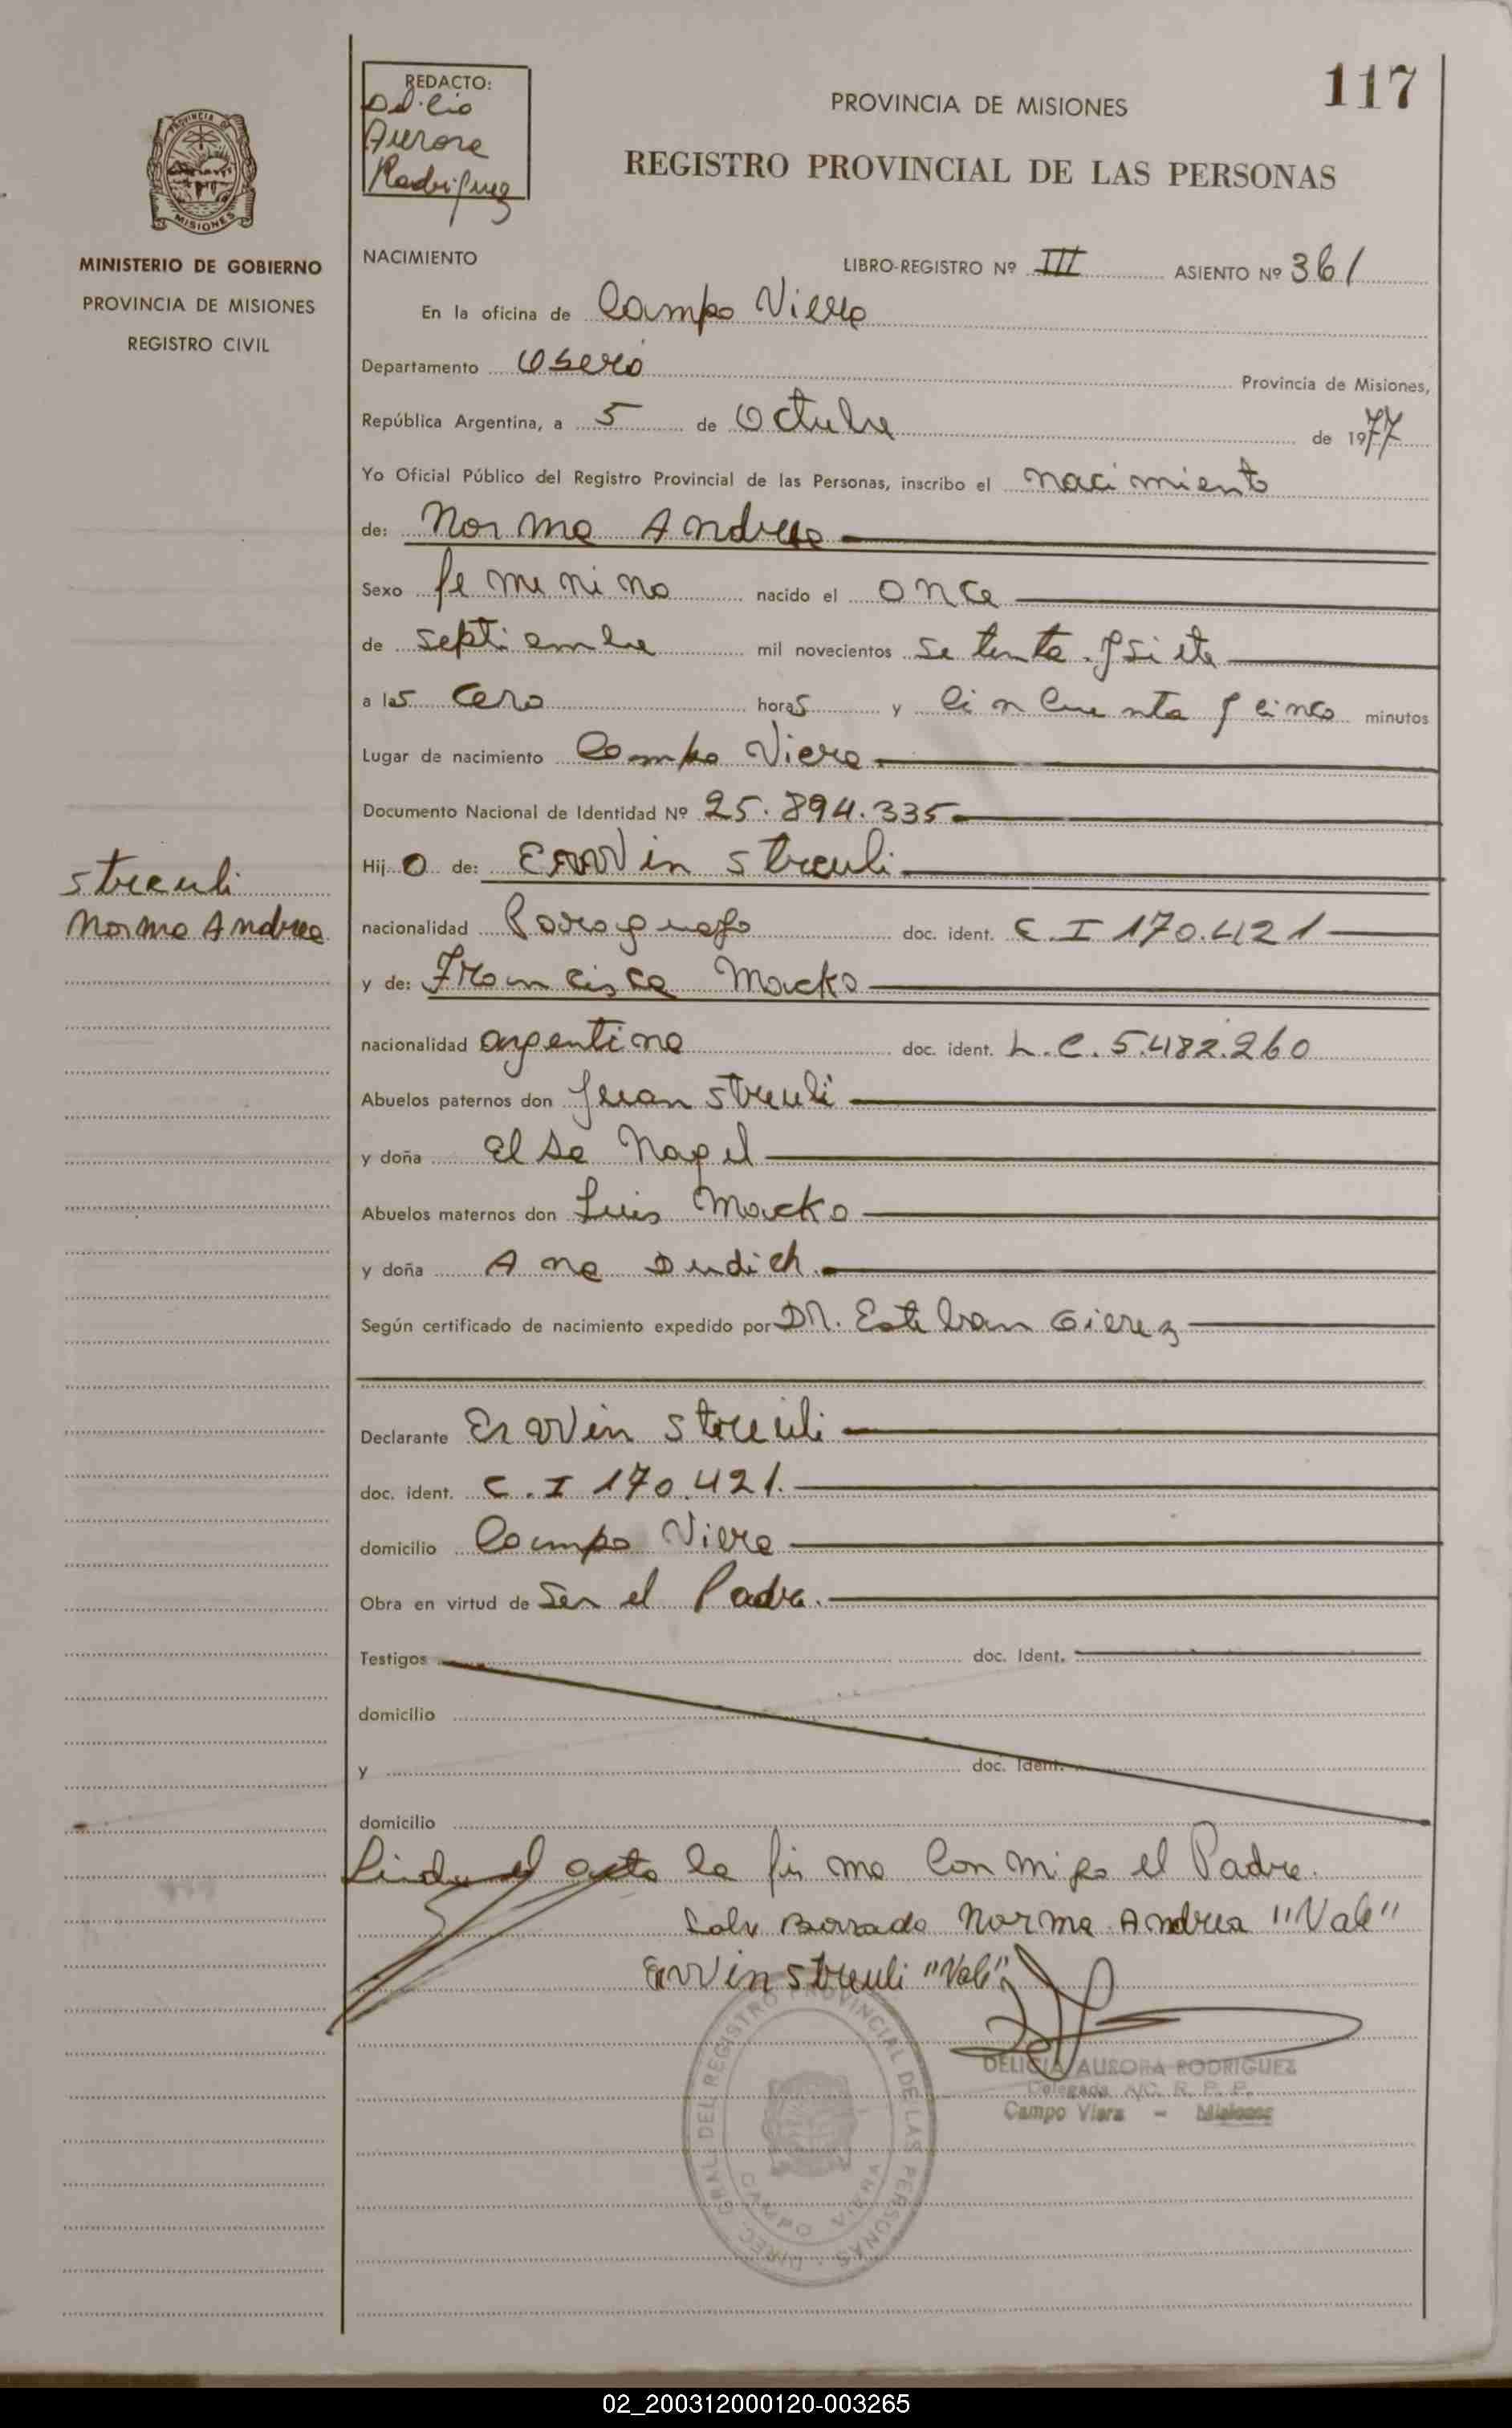 117
REDACTO:
Delicia
Aurora
Rodriguez
PROVINCIA DE MISIONES
REGISTRO PROVINCIAL DE LAS PERSONAS
PROVINCIA DE
MISIONES
MINISTERIO DE GOBIERNO
PROVINCIA DE MISIONES
REGISTRO CIVIL
NACIMIENTO LIBRO-REGISTRO Nº III ASIENTO Nº 361
En la oficina de Campo Viera
Departamento Oberá Provincia de Misiones,
República Argentina, a 5 de Octubre de 1977
Yo Oficial Público del Registro Provincial de las Personas, inscribo el nacimiento
de: Norma Andrea
Sexo femenino nacido el once
de septiembre mil novecientos setenta y siete
a las cero horas y cincuenta y cinco minutos
Lugar de nacimiento Campo Viera
Documento Nacional de Identidad Nº 25.894.335
Hija de: Erwin Streuli
Streuli
Norma Andrea
nacionalidad Paraguayo doc. ident. C.I 170.421
y de: Francisca Macko
nacionalidad argentina doc. ident. L.C. 5.482.260
Abuelos paternos don Juan Streuli
y doña Elsa Nagel
Abuelos maternos don Luis Macko
y doña Ana Dudich
Según certificado de nacimiento expedido por DR. Esteban Gierez
Declarante Erwin Streuli
doc. ident. C.I 170.421.
domicilio Campo Viera
Obra en virtud de ser el Padre.
Testigos doc. Ident.
domicilio
y doc. Ident.
domicilio
el acta la firma conmigo el Padre.
Borrado Norma Andrea "Vale"
Erwin Streuli "Vale"
DELICIA AURORA RODRIGUEZ
Delegada A/C. R. P. P.
Campo Viera - Misiones
DIREC. GRAL. DEL REGISTRO PROVINCIAL DE LAS PERSONAS
CAMPO VIERA
02_200312000120-003265